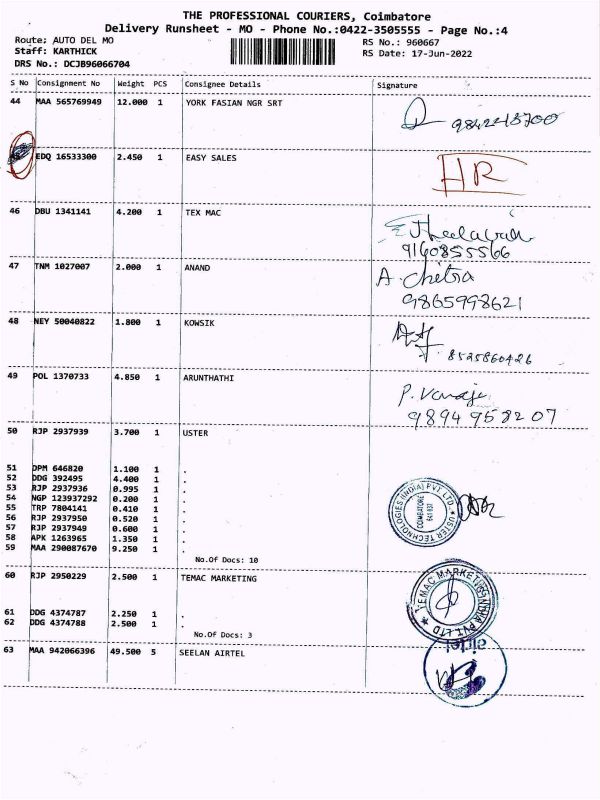 THE PROFESSIONAL COURIERS, Coimbatore
Delivery Runsheet - MO - Phone No.:0422-3505555 - Page No.:4
Route; AUTO DEL MO RS No.: 960667
Staff: KARTHICK RS Date: 17-Jun-2022
DRS No.: DCJB96066704
S No Consignment No Weight PCS Consignee Details Signature
44 MAA 565769949 12.000 1 YORK FASIAN NGR SRT
EDQ 16533300 2.450 1 EASY SALES HR
46 DBU 1341141 4.200 1 TEX MAC
9160855566
47 TNM 1027007 2.000 1 ANAND A. Chitra
9865998621
48 NEY 50040822 1.800 1 KOWSIK
8525860426
49 POL 1370733 4.850 1 ARUNTHATHI P. Vanaja
9894958207
50 RJP 2937939 3.700 1 USTER
51 DPM 646820 1.100 1 .
52 DDG 392495 4.400 1 .
53 RJP 2937936 0.995 1 .
54 NGP 123937292 0.200 1 .
55 TRP 7804141 0.410 1 .
56 RJP 2937950 0.520 1 .
57 RJP 2937949 0.600 1 .
58 APK 1263965 1.350 1 .
59 MAA 290087670 9.250 1 .
No.Of Docs: 10
USTER TECHNOLOGIES (INDIA) PVT LTD.
COIMBATORE
641 037
60 RJP 2950229 2.500 1 TEMAC MARKETING
61 DDG 4374787 2.250 1 .
62 DDG 4374788 2.500 1 .
No.Of Docs: 3
TEMAC MARKETING INDIA PVT. LTD
63 MAA 942066396 49.500 5 SEELAN AIRTEL
airtel